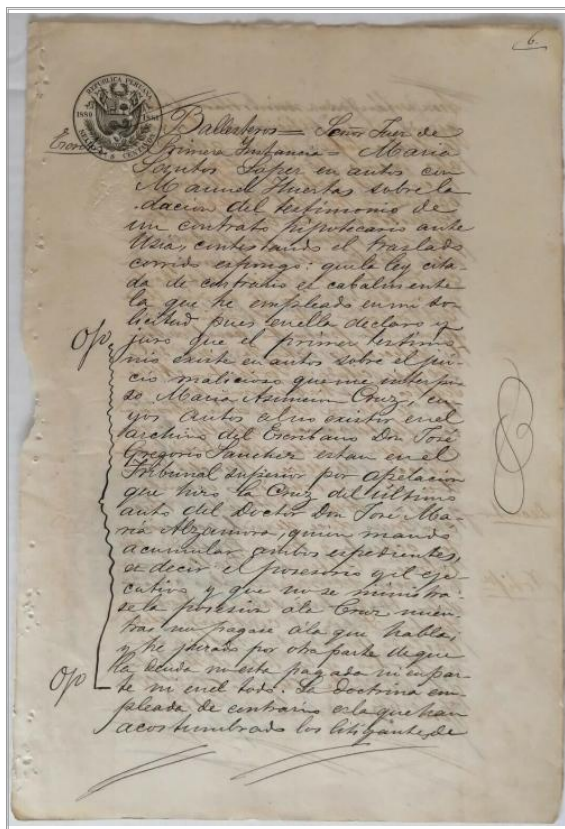 6.
REPUBLICA PERUANA
1880 188
CENTAVOS
Ballesteros = Señor Juez de
Primera Instancia = Maria
Santos Lopez en autos con
Manuel Huertas sobre la
dacion del testimonio de
un contrato hipotecario ante
Usia, contestando el traslado
corrido espongo: que la ley cita-
da de contrario es cabalmente
la que he empleado en mi so-
licitud pues en ella declaro y
juro que el primer testimo
nio existe en autos sobre el jui-
cio malicioso que me interpu
so Maria Asuncion Cruz, cu-
yos autos al no existir en el
archivo del Escribano Don José
Gregorio Sanchez estan en el
Tribunal superior por apelacion
que hizo la Cruz del último
auto del Doctor Don José Ma-
ria Alzamora, quien mandó
acumular ambos espedientes,
es decir el posesorio y el eje-
cutivo y que no se ministra-
se la posesion a la Cruz mien-
tras no pagase a la que habla,
y he jurado por otra parte de que
la deuda no esta pagada ni en par-
te ni en el todo. La doctrina em-
pleada de contrario es la que han
acostumbrado los litigantes de
Ojo
Ojo